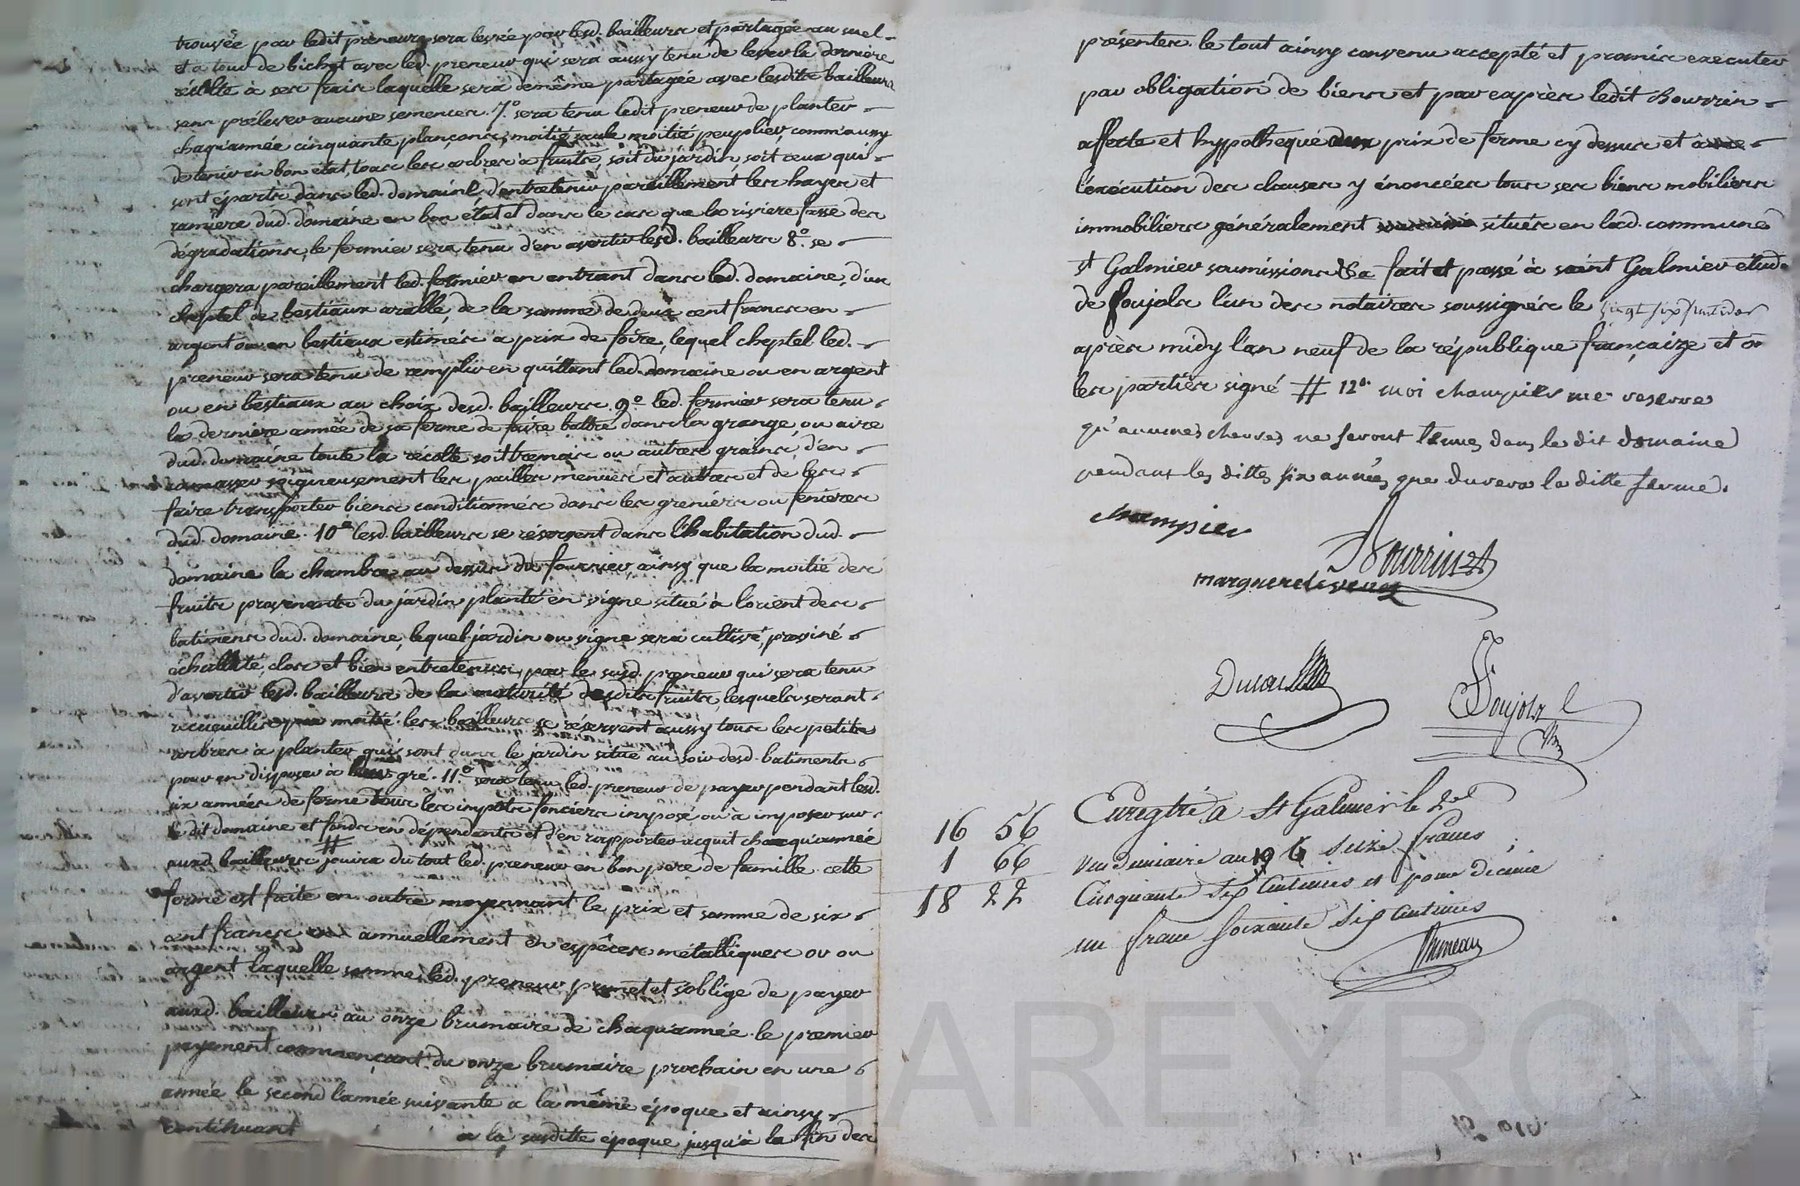 trouvée par ledit preneur, sera levée par lesd. bailleurs et partagée au mel-
et a tour de bichet avec led. preneur qui sera aussy tenu de lever la dernière
récolte à ses frais laquelle sera de même partagée avec lesdits bailleurs
sans prélever aucune semences. 7.° sera tenu ledit preneur de planter
chaqu'année cinquante plançons, moitié saule moitié peuplier, comm'aussy
de tenir en bon état, tous les arbres a fruits, soit du jardin, soit ceux qui
sont épartés dans led. domaine, d'entretenir pareillement les hayes et
ramière dud. domaine en bon état et dans le cas que la riviere fasse des
dégradations, le fermier sera tenu d'en avertir lesd. bailleurs 8.° se
chargera pareillement led. fermier en entrant dans led. domaine, d'un
cheptel de bestiaux arable, de la somme de deux cent francs en
argent ou en bestiaux estimés à prix de foire, lequel cheptel led.
preneur sera tenu de remplir en quittant led. domaine ou en argent
ou en bestiaux au choix desd. bailleurs. 9.° led. fermier sera tenu
la dernière année de sa ferme de faire battre dans la grange, ou aire
dud. domaine toute la récolte soit tremois ou autres grains, d'en
ramasser soigneusement les pailles menues et autres et de les
faire transporter biens conditionnés dans les greniers ou fenieres
dud. domaine. 10.° lesd. bailleurs se réservent dans l'habitation dud.
domaine la chambre au dessus du fournier, ainsy que la moitié des
fruits provenants du jardin planté en vigne situé à l'orient des
batiments dud. domaine, lequel jardin ou vigne sera cultivé, proviné
échallaté, clos et bien entretenus par le susd. preneur qui sera tenu
d'avertir lesd. bailleurs de la maturité desdits fruits, lesquels seront
recueillis par moitié. les bailleurs se réservent aussy tous les petits
arbres à planter qui sont dans le jardin situé au soir desd. batiments
pour en disposer à leur gré. 11.° sera tenu led. preneur de payer pendant lesd.
six années de ferme tous les impots fonciers imposé ou à imposer sur
le dit domaine et fonds en dépendants et d'en rapporter acquit chaqu'année
auxd. bailleurs # jouira du tout led. preneur en bon pere de famille. cette
ferme est faite en outre moyennant le prix et somme de six
cent francs annuellement en espèces métalliques or ou
argent laquelle somme led. preneur promet et s'oblige de payer
auxd. bailleurs au onze brumaire de chaqu'année. le premier
payement commençant du onze brumaire prochain en une
année le second l'année suivante a la même époque et ainsy
continuant a la susditte époque jusqu'à la fin des
présentes. le tout ainsy convenu accepté et promis executer
par obligation de biens et par exprès ledit Bourrin
affecte et hypotheque aux prix de ferme cy dessus et à
l'exécution des clauses y énoncées tous ses biens mobiliers
immobiliers généralement situés en lad. commune
st Galmier soumissions &a fait et passé à saint Galmier etude
de Soujols l'un des notaires soussignés le vingt six fructidor
après midy l'an neuf de la république française et on
les parties signé # 12.° moi champier me reserve
qu'aucunes chevres ne seront tenues dans le dit domaine
pendant les dittes six années que durera la ditte ferme.
champier
Bourrin
Soujols
16 56
1 66
18 22
Enregtré a St Galmier le 2
vendemiaire an 10 seize francs
Cinquante six Centimes et pour décime
un franc soixante six Centimes
CHAREYRON